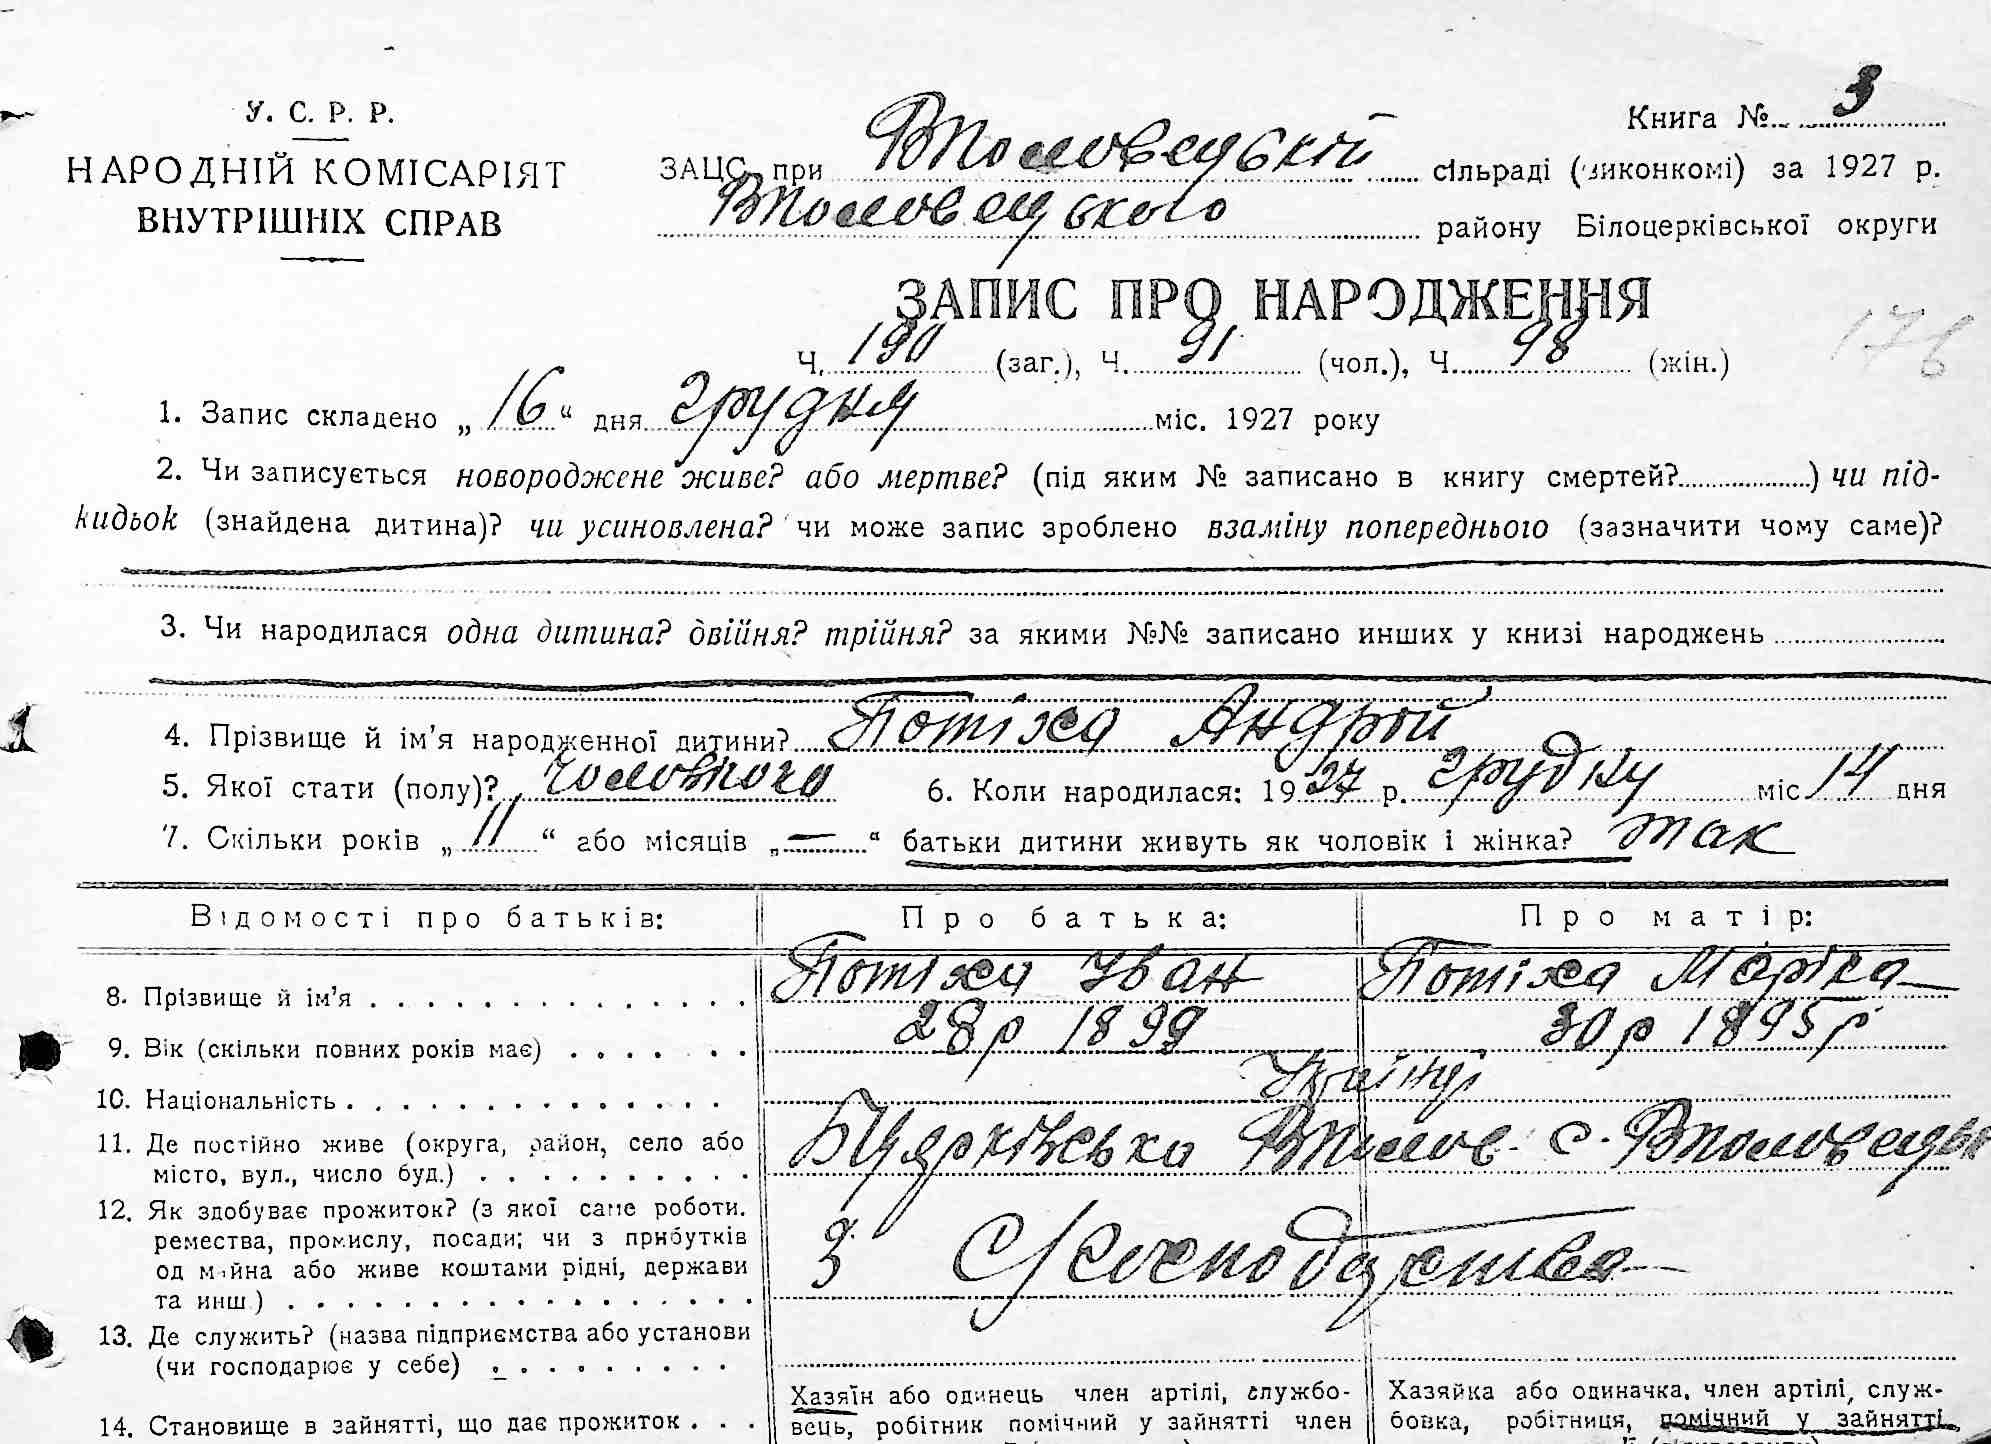 У. С. Р. Р.
НАРОДНІЙ КОМІСАРІЯТ
ВНУТРІШНІХ СПРАВ
Книга № 3
ЗАЦС при Вполовецькій сільраді (виконкомі) за 1927 р.
Вполовецького району Білоцерківської округи
ЗАПИС ПРО НАРОДЖЕННЯ
Ч. 190 (заг.), Ч. 91 (чол.), Ч. 98 (жін.)
176
1. Запис складено „ 16 “ дня грудня міс. 1927 року
2. Чи записується новороджене живе? або мертве? (під яким № записано в книгу смертей?) чи під-
кидьок (знайдена дитина)? чи усиновлена? чи може запис зроблено взаміну попереднього (зазначити чому саме)?
3. Чи народилася одна дитина? двійня? трійня? за якими №№ записано инших у книзі народжень
4. Прізвище й ім’я народженної дитини? Потіха Андрій
5. Якої стати (полу)? чоловічого 6. Коли народилася: 1927 р. грудня міс 14 дня
7. Скільки років „ 11 “ або місяців „ — “ батьки дитини живуть як чоловік і жінка? так
Відомості про батьків: Про батька: Про матір:
8. Прізвище й ім’я Потіха Іван Потіха Маріка
9. Вік (скільки повних років має) 28 р 1899 30 р 1895 р
10. Національність
11. Де постійно живе (округа, район, село або
місто, вул., число буд.) Бцерківська Вполов. с. Вполовецьк
12. Як здобуває прожиток? (з якої саме роботи.
ремества, промислу, посади; чи з прибутків
од майна або живе коштами рідні, держави
та инш.) З С/господарства
13. Де служить? (назва підприємства або установи
(чи господарює у себе)
14. Становище в зайнятті, що дає прожиток
Хазяїн або одинець член артілі, службо-
вець, робітник помічний у зайнятті член
Хазяйка або одиначка, член артілі, служ-
бовка, робітниця, помічний у зайнятті